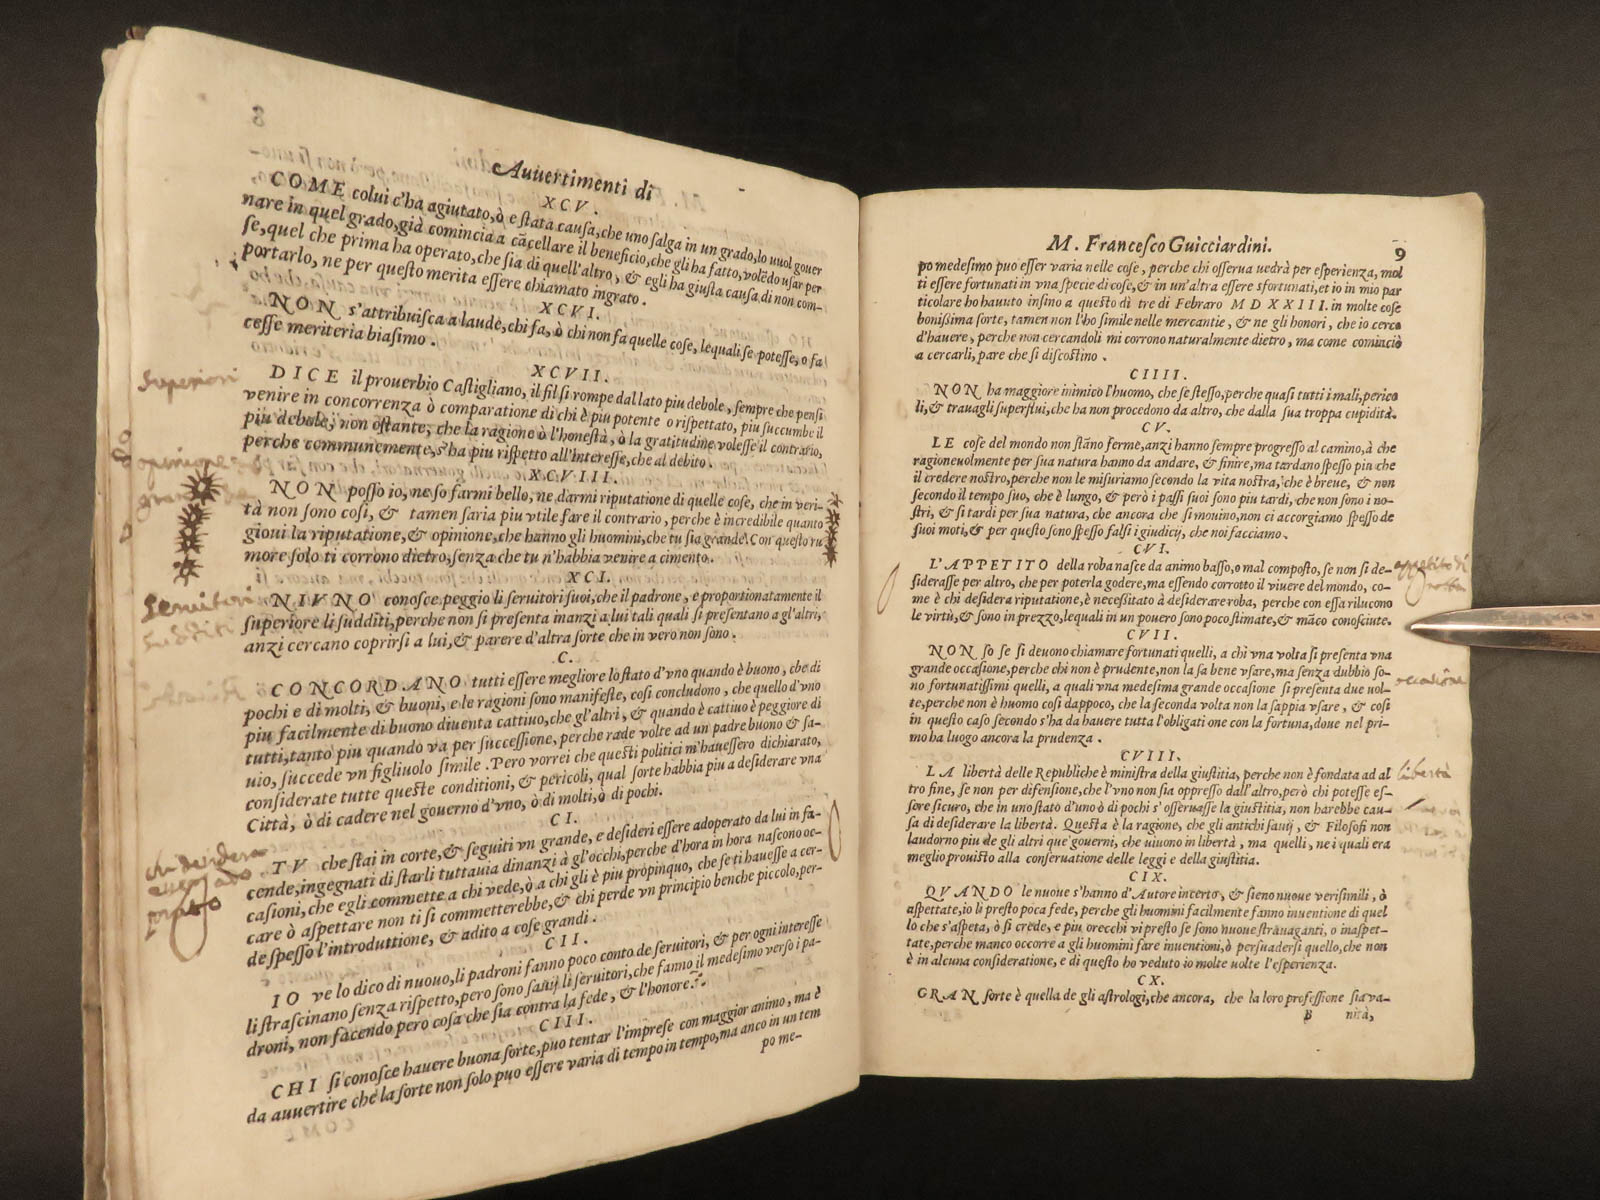 Auuertimenti di
XCV.
COME colui c'ha agiutato, ò e stata causa, che uno salga in un grado, lo vuol gouer
nare in quel grado, già comincia a cācellare il beneficio, che gli ha fatto, volēdo usar per
se, quel che prima ha operato, che sia di quell'altro, & egli ha giusta causa di non com-
portarlo, ne per questo merita essere chiamato ingrato.
XCVI.
NON s'attribuisca a laude, chi fa, ò chi non fa quelle cose, lequali se potesse, o fa
cesse meriteria biasimo.
XCVII.
DICE il prouerbio Castigliano, il fil si rompe dal lato piu debole, sempre che pensi
venire in concorrenza ò comparatione di chi è piu potente o rispettato, piu succumbe il
piu debole, non ostante, che la ragione ò l'honestà, ò la gratitudine volesse il contrario,
perche communemente, s'ha piu rispetto all'interesse, che al debito.
XCVIII.
NON posso io, ne so farmi bello, ne darmi riputatione di quelle cose, che in veri-
tà non sono cosi, & tamen saria piu vtile fare il contrario, perche è incredibile quanto
gioui la riputatione, & opinione, che hanno gli huomini, che tu sia grande. Con questo ru
more solo ti corrono dietro, senza che tu n'habbia venire a cimento.
XCI.
NIVNO conosce peggio li seruitori suoi, che il padrone, e proportionatamente il
superiore li sudditi, perche non si presenta inanzi a lui tali quali si presentano a gl'altri,
anzi cercano coprirsi a lui, & parere d'altra sorte che in vero non sono.
C.
CONCORDANO tutti essere megliore lo stato d'vno quando è buono, che di
pochi e di molti, & buoni, e le ragioni sono manifeste, cosi concludono, che quello d'vno
piu facilmente di buono diuenta cattiuo, che gl'altri, & quando è cattiuo è peggiore di
tutti, tanto piu quando va per successione, perche rade volte ad un padre buono & sa-
uio, succede vn figliuolo simile. Pero vorrei che questi politici m'hauessero dichiarato,
considerate tutte queste conditioni, & pericoli, qual sorte habbia piu a desiderare vna
Città, ò di cadere nel gouerno d'vno, ò di molti, ò di pochi.
CI.
TV che stai in corte, & seguiti vn grande, e desideri essere adoperato da lui in fa-
cende, ingegnati di starli tuttauia dinanzi à gl'occhi, perche d'hora in hora nascono oc-
casioni, che egli commette a chi vede, ò a chi gli è piu propinquo, che se ti hauesse a cer-
care ò aspettare non ti si commetterebbe, & chi perde vn principio benche piccolo, per-
de spesso l'introduttione, & adito a cose grandi.
CII.
IO ve lo dico di nuouo, li padroni fanno poco conto de seruitori, & per ogni interesse
li strascinano senza rispetto, pero sono sauij li seruitori, che fanno il medesimo verso i pa-
droni, non facendo pero cosa che sia contra la fede, & l'honore.
CIII.
CHI si conosce hauere buona sorte, puo tentar l'imprese con maggior animo, ma è
da auuertire che la sorte non solo puo essere varia di tempo in tempo, ma anco in un tem
po me-
Superiori
opinione
seruitori
sudditi
M. Francesco Guicciardini.
9
po medesimo puo esser varia nelle cose, perche chi osserua uedrà per esperienza, mol
ti essere fortunati in vna specie di cose, & in un'altra essere sfortunati, et io in mio par
ticolare ho hauuto insino a questo dì tre di Febraro MDXXIII. in molte cose
bonissima sorte, tamen non l'ho simile nelle mercantie, & ne gli honori, che io cerco
d'hauere, perche non cercandoli mi corrono naturalmente dietro, ma come comincio
a cercarli, pare che si discostino.
CIIII.
NON ha maggiore inimico l'huomo, che se stesso, perche quasi tutti i mali, perico
li, & trauagli superflui, che ha non procedono da altro, che dalla sua troppa cupidità.
CV.
LE cose del mondo non stāno ferme, anzi hanno sempre progresso al camino, à che
ragioneuolmente per sua natura hanno da andare, & finire, ma tardano spesso piu che
il credere nostro, perche non le misuriamo secondo la vita nostra, che è breue, & non
secondo il tempo suo, che è lungo, & però i passi suoi sono piu tardi, che non sono i no-
stri, & si tardi per sua natura, che ancora che si mouino, non ci accorgiamo spesso de
suoi moti, & per questo sono spesso falsi i giudicij, che noi facciamo.
CVI.
L'APPETITO della roba nasce da animo basso, o mal composto, se non si de-
siderasse per altro, che per poterla godere, ma essendo corrotto il viuere del mondo, co-
me è chi desidera riputatione, è necessitato à desiderare roba, perche con essa rilucono
le virtù, & sono in prezzo, lequali in un pouero sono poco stimate, & māco conosciute.
CVII.
NON so se si deuono chiamare fortunati quelli, a chi vna volta si presenta vna
grande occasione, perche chi non è prudente, non la sa bene vsare, ma senza dubbio so-
no fortunatissimi quelli, a quali vna medesima grande occasione si presenta due uol-
te, perche non è huomo cosi dappoco, che la seconda volta non la sappia vsare, & cosi
in questo caso secondo s'ha da hauere tutta l'obligatione con la fortuna, doue nel pri-
mo ha luogo ancora la prudenza.
CVIII.
LA libertà delle Republiche è ministra della giustitia, perche non è fondata ad al
tro fine, se non per difensione, che l'vno non sia oppresso dall'altro, però chi potesse es-
sere sicuro, che in uno stato d'uno ò di pochi s'osseruasse la giustitia, non harebbe cau-
sa di desiderare la libertà. Questa è la ragione, che gli antichi sauij, & Filosofi non
laudorno piu de gli altri que' gouerni, che uiuono in libertà, ma quelli, ne i quali era
meglio prouisto alla conseruatione delle leggi e della giustitia.
CIX.
QVANDO le nuoue s'hanno d'Autore incerto, & sieno nuoue verisimili, ò
aspettate, io li presto poca fede, perche gli huomini facilmente fanno inuentione di quel
lo che s'aspeta, ò si crede, e piu orecchi vi presto se sono nuoue strauaganti, o inaspet-
tate, perche manco occorre a gli huomini fare inuentioni, ò persuadersi quello, che non
è in alcuna consideratione, e di questo ho veduto io molte uolte l'esperienza.
CX.
GRAN sorte è quella de gli astrologi, che ancora, che la loro professione sia va-
B nità,
appetito di
roba
occasione
libertà